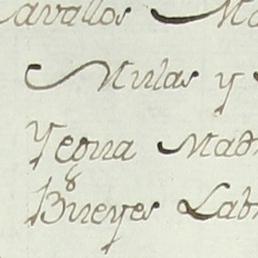 Cavallos Ma
Mulas y
Yegua Mad
Bueyes Lab